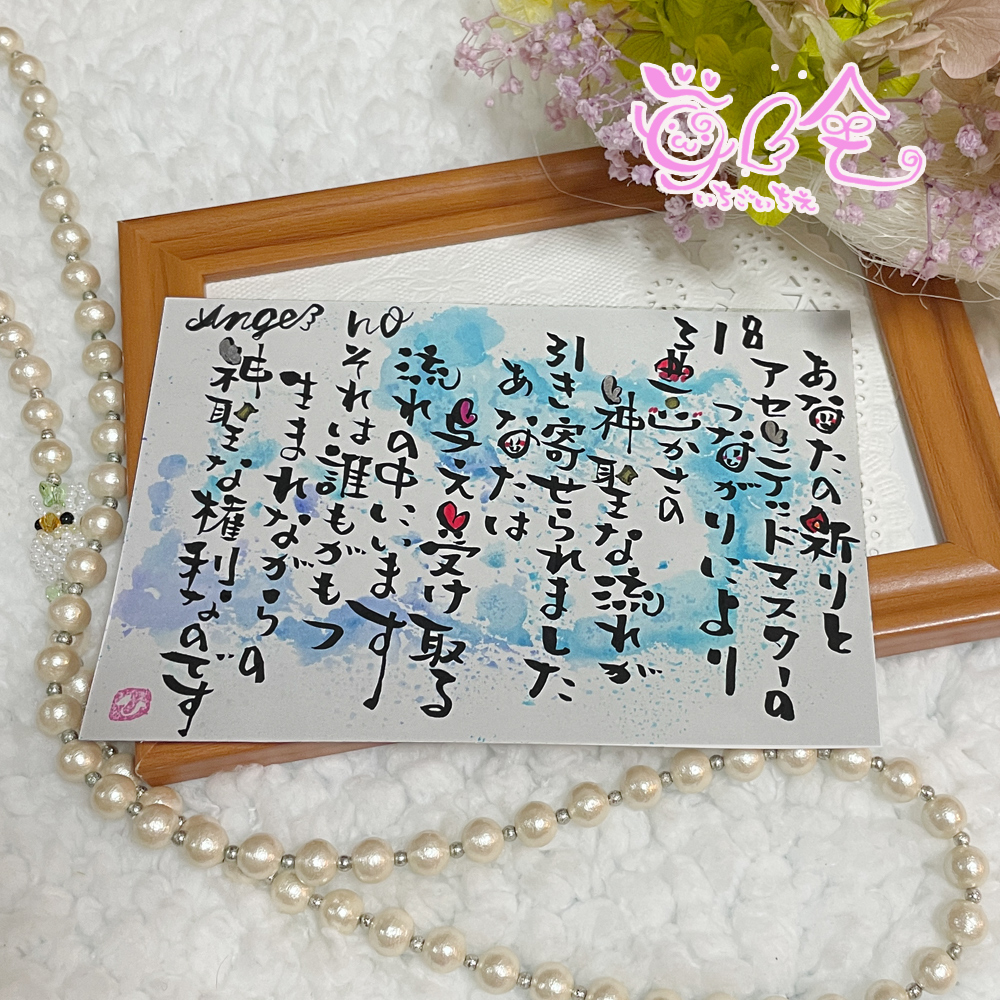 いちごいちえ
Angel no 318
あなたの祈りと
アセンデッドマスターの
つながりにより
豊かさの
神聖な流れが
引き寄せられました
あなたは
与え受け取る
流れの中にいます
それは誰もがもつ
生まれながらの
神聖な権利なのです